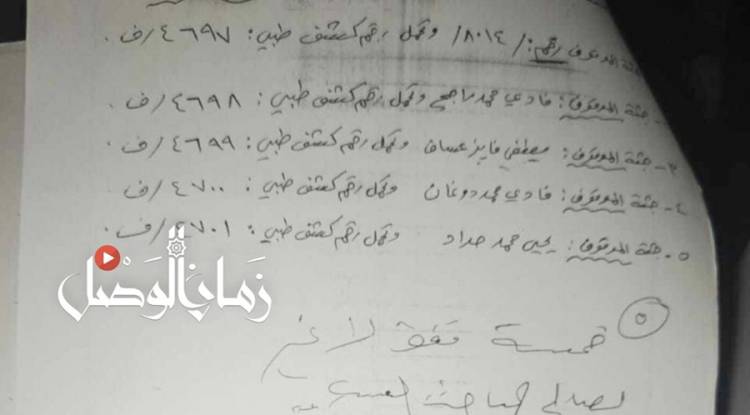 جثة الموقوف رقم: /٨٠١٤/ وتحمل رقم كشف طبي: ٤٦٩٧/ف.
جثة الموقوف: فادي محمد ناجي وتحمل رقم كشف طبي: ٤٦٩٨/ف.
٣- جثة الموقوف: مصطفى فايز عساف وتحمل رقم كشف طبي: ٤٦٩٩/ف.
٤- جثة الموقوف: فادي محمد دوغان وتحمل رقم كشف طبي: ٤٧٠٠/ف.
٥- جثة الموقوف: يحيى محمد حداد وتحمل رقم كشف طبي: ٤٧٠١/ف.
٥
خمسة فقط لا غير
زمان الوصل